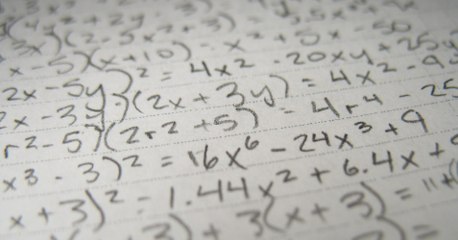 3x)(2-5x²+3)
x-5)(x+10) - x²+5x-50
2x-5y)² = 4x²-20xy+25y
2x-3y)(2x+3y) = 4x²-9y
r²-5)(2r²+5) - 4r⁴-25
x³-3)² = 16x⁶-24x³+9
x+3)² - 1.44x²+6.4x+9
+3(x+3) = 11+(